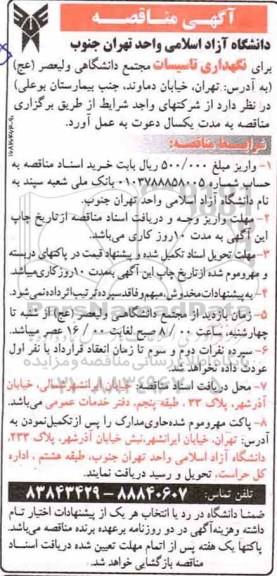 آگهی مناقصه
دانشگاه آزاد اسلامی واحد تهران جنوب
برای نگهداری تاسیسات مجتمع دانشگاهی ولیعصر (عج)
(به آدرس: تهران، خیابان دماوند، جنب بیمارستان بوعلی)
در نظر دارد از شرکتهای واجد شرایط از طریق برگزاری
مناقصه به مدت یکسال دعوت به عمل آورد.
شرایط مناقصه:
۱- واریز مبلغ ۵۰۰/۰۰۰ ریال بابت خرید اسناد مناقصه به
حساب شماره ۰۱۰۳۷۸۸۸۵۸۰۰۵ بانک ملی شعبه سپند به
نام دانشگاه آزاد اسلامی واحد تهران جنوب.
۲- مهلت واریز وجه و دریافت اسناد مناقصه از تاریخ چاپ
این آگهی به مدت ۱۰ روز کاری می‌باشد.
۳- مهلت تحویل اسناد تکمیل شده و پیشنهاد قیمت در پاکتهای دربسته
و مهروموم شده از تاریخ چاپ این آگهی به مدت ۱۰ روز کاری میباشد.
۴- به پیشنهادات مخدوش، مبهم و فاقد سپرده ترتیب اثر داده نمی‌شود.
۵- زمان بازدید از مجتمع دانشگاهی ولیعصر (عج) از شنبه تا
چهارشنبه، ساعت ۸/۰۰ صبح لغایت ۱۶/۰۰ عصر میباشد.
۶- سپرده نفرات دوم و سوم تا زمان انعقاد قرارداد با نفر اول
عودت داده نخواهد شد.
۷- محل دریافت اسناد مناقصه: خیابان ایرانشهر شمالی، خیابان
آذرشهر، پلاک ۳۳، طبقه پنجم، دفتر خدمات عمومی می‌باشد.
۸- پاکت مهروموم شده حاوی مدارک را پس از تکمیل نمودن به
آدرس: تهران، خیابان ایرانشهر، نبش خیابان آذرشهر، پلاک ۲۳۳،
دانشگاه آزاد اسلامی واحد تهران جنوب، طبقه هشتم ، اداره
کل حراست، تحویل و رسید دریافت نمایند.
تلفن تماس: ۸۸۸۴۰۶۰۷ - ۸۳۸۴۳۴۲۹
ضمناً دانشگاه در رد یا انتخاب هر یک از پیشنهادات اختیار تام
داشته و هزینه آگهی در دو روزنامه برعهده برنده مناقصه می‌باشد.
پاکتها یک هفته پس از اتمام مهلت تعیین شده دریافت اسناد
مناقصه بازگشایی خواهد شد.